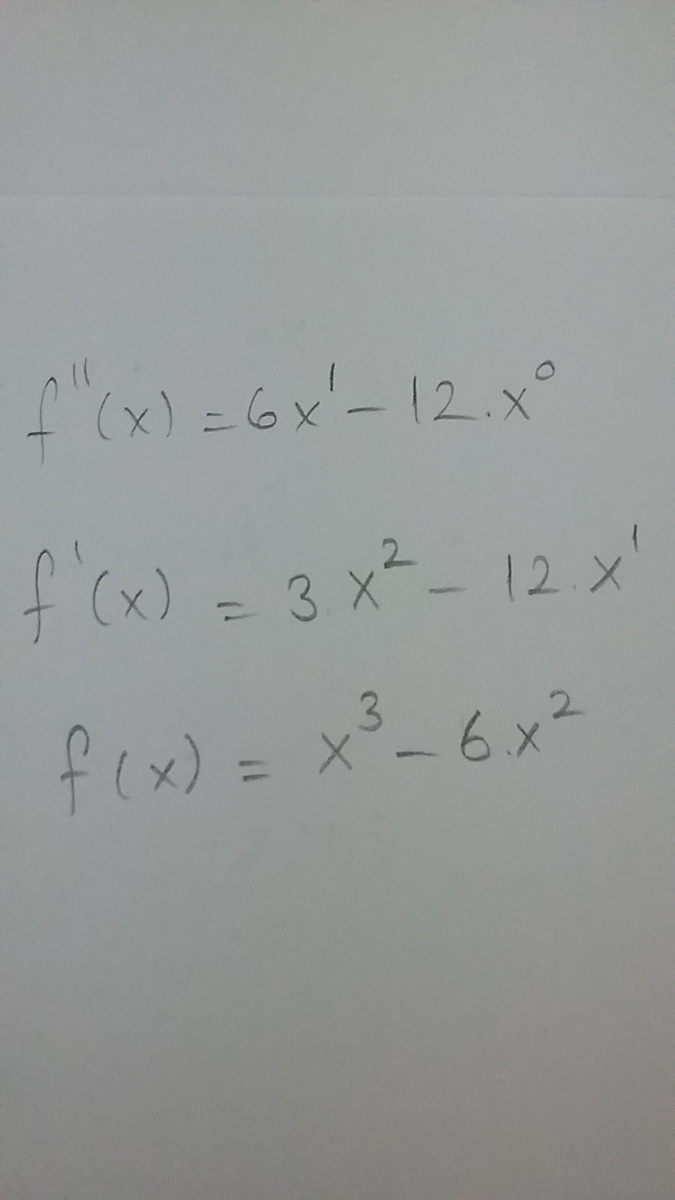 f''(x) = 6x¹ - 12.x⁰
f'(x) = 3.x² - 12.x¹
f(x) = x³ - 6.x²